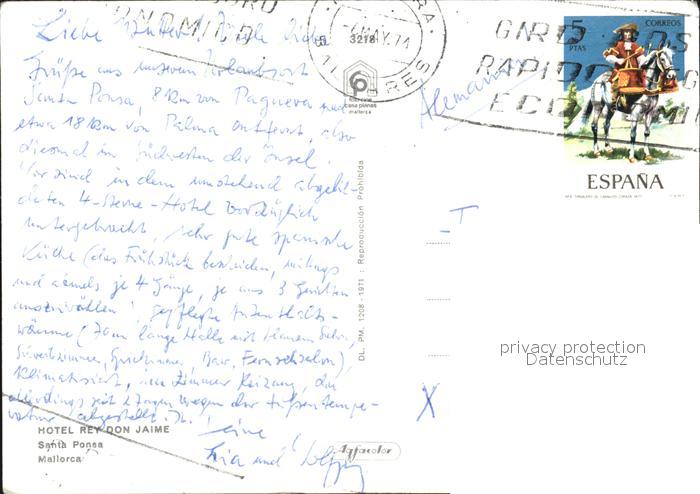 Liebe Mutter,
Grüße aus unserem Urlaubsort
Santa Ponsa, 8 km von Paguera und
etwa 18 km von Palma entfernt, also
diesmal im Südwesten der Insel.
Wir sind in dem umstehend abgebil-
deten 4-Sterne-Hotel vorzüglich
untergebracht, sehr gute spanische
Küche (das Frühstück bescheiden, mittags
und abends je 4 Gänge, je aus 3 Gerichten
auszuwählen), gepflegte Aufenthalts-
räume (70 m lange Halle mit blauem
Bar, Fernsehsalon),
klimatisiert, im Zimmer Heizung, die
allerdings seit 2 Tagen wegen der Außentempe-
ratur abgestellt ist.
und
HOTEL REY DON JAIME
Santa Ponsa
Mallorca
3218
foto cine
casa planas
mallorca
MAY.71
Alemania
DL. PM. 1208-1971 : Reproducción Prohibida
Agfacolor
RAPIDO
5
PTAS
CORREOS
ESPAÑA
T
X
privacy protection
Datenschutz